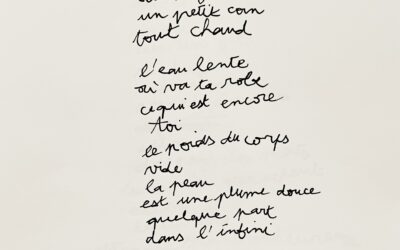 un petit coin
tout chaud
l'eau lente
où va ta robe
ce qui est encore
Toi
le poids du corps
vide
la peau
est une plume douce
quelque part
dans l'infini